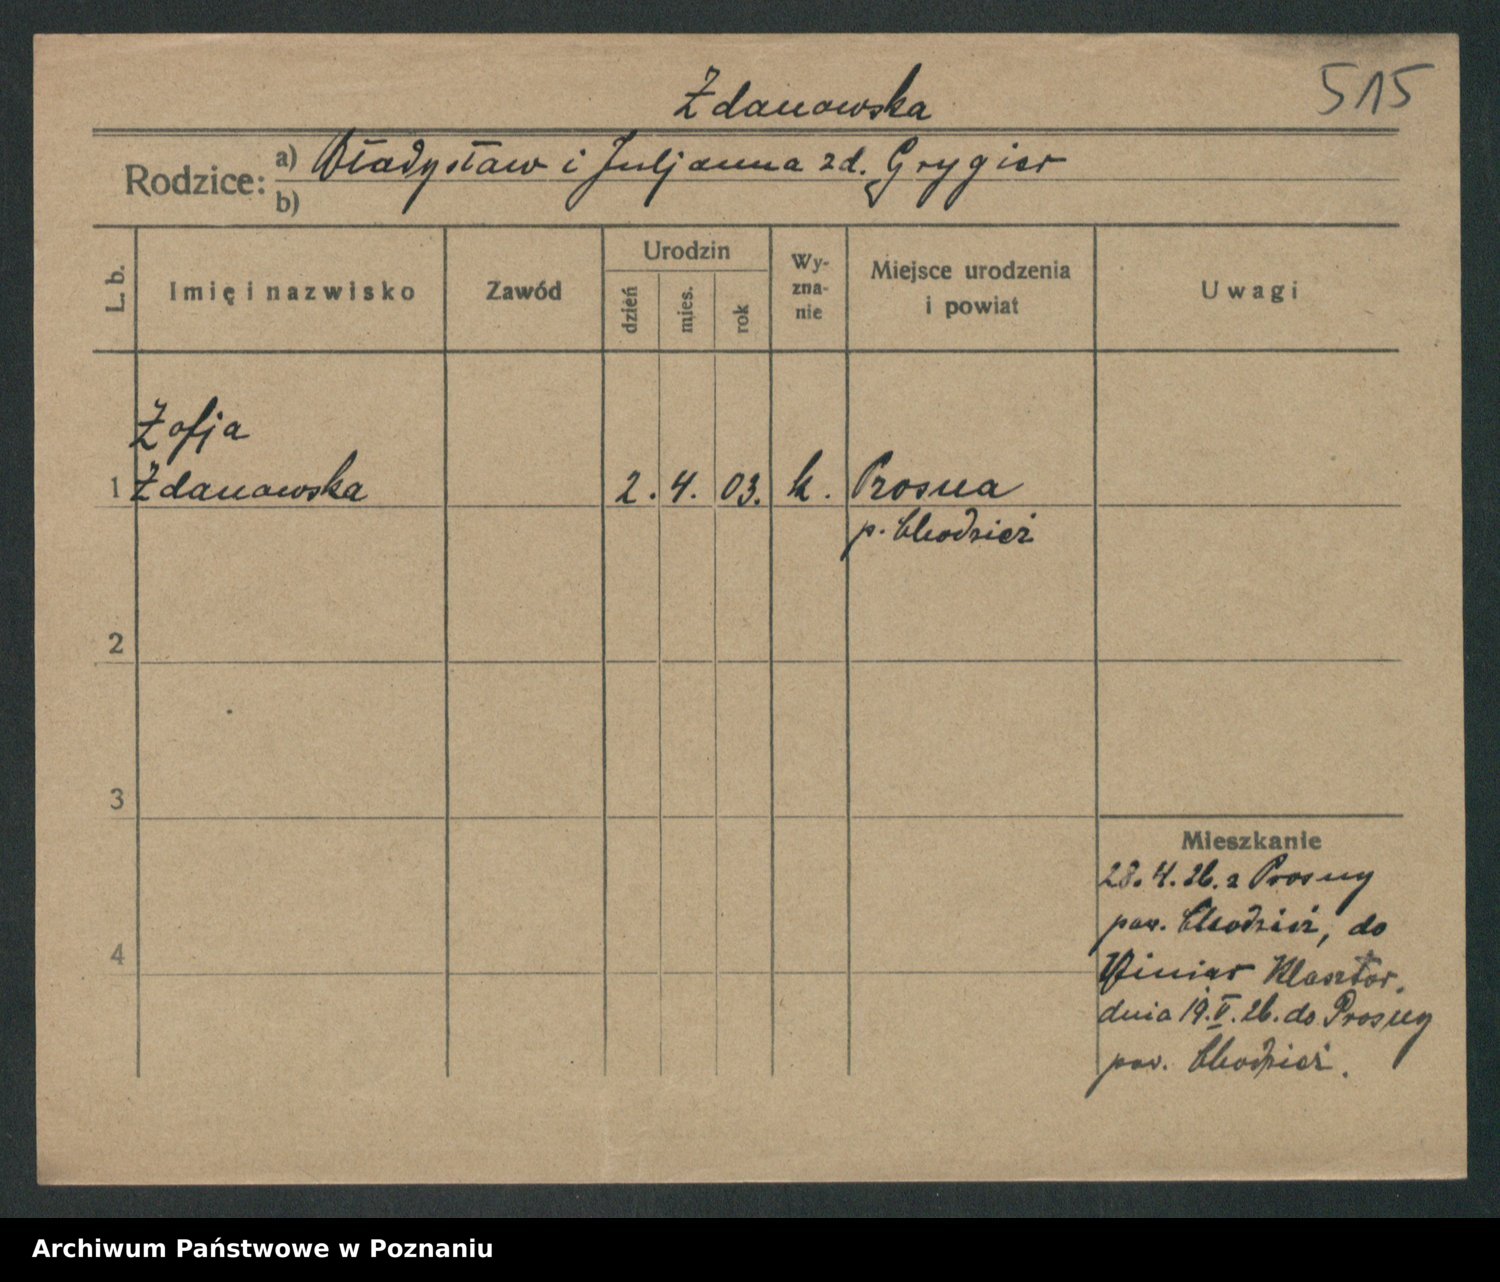 515
Zdanowska
Rodzice: a) Władysław i Juljanna zd. Grygier
b)
L. b. Imię i nazwisko Zawód Urodzin dzień mies. rok Wy-zna-nie Miejsce urodzenia i powiat Uwagi
Zofja
1 Zdanowska 2. 4. 03. k. Prosna
p. Chodzież
2
3
Mieszkanie
28.4.26. z Prosny
pow. Chodzież, do
4
Winiar Klasztor.
dnia 19.V.26. do Prosny
pow. Chodzież.
Archiwum Państwowe w Poznaniu